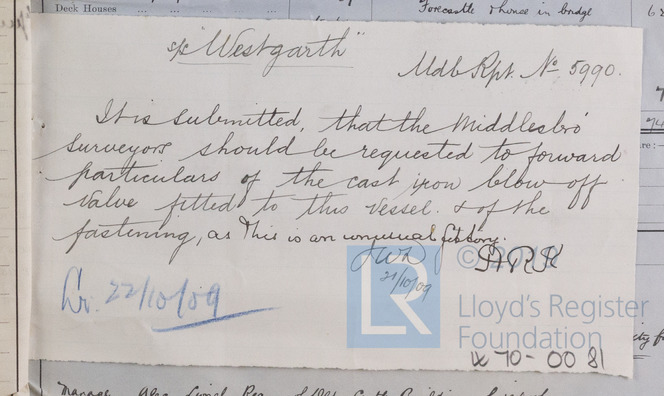 Deck Houses ... ... ... ...
Forecastle & house in bridge
S/S "Westgarth"
Mdb Rpt. No 5990.
It is submitted, that the Middlesbro'
surveyors should be requested to forward
particulars of the cast iron blow off
valve fitted to this vessel. & of the
fastening, as this is an unusual fitting.
21/10/09
© 2019
Lr. 22/10/09
LR
Lloyd's Register
Foundation